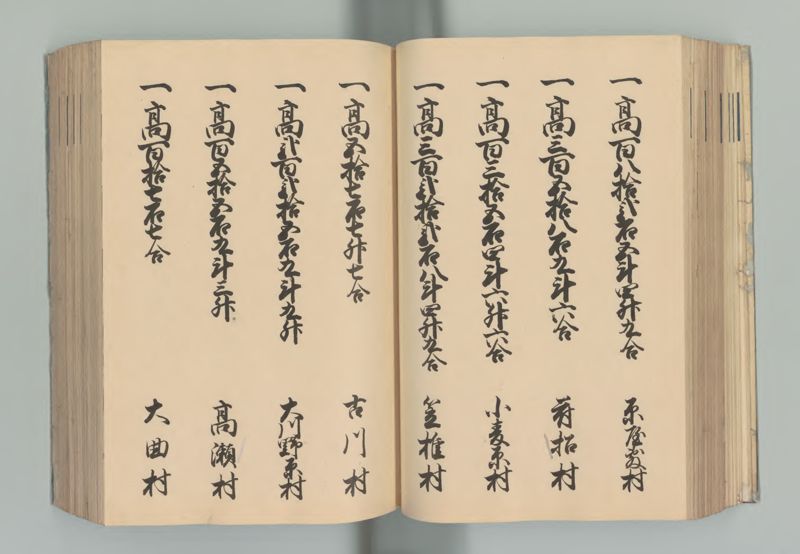 一高百八拾弐石五斗四升九合
一高三百五拾八石九斗六合 村
一高百三拾五石四斗六升六合 小麦原村
一高三百弐拾弐石八斗四升九合 笠椎村
一高五拾七石七升七合 古川村
一高弐百弐拾五石九斗九升 大川野原村
一高百五拾五石九斗三升 高瀬村
一高百拾七石七合 大曲村